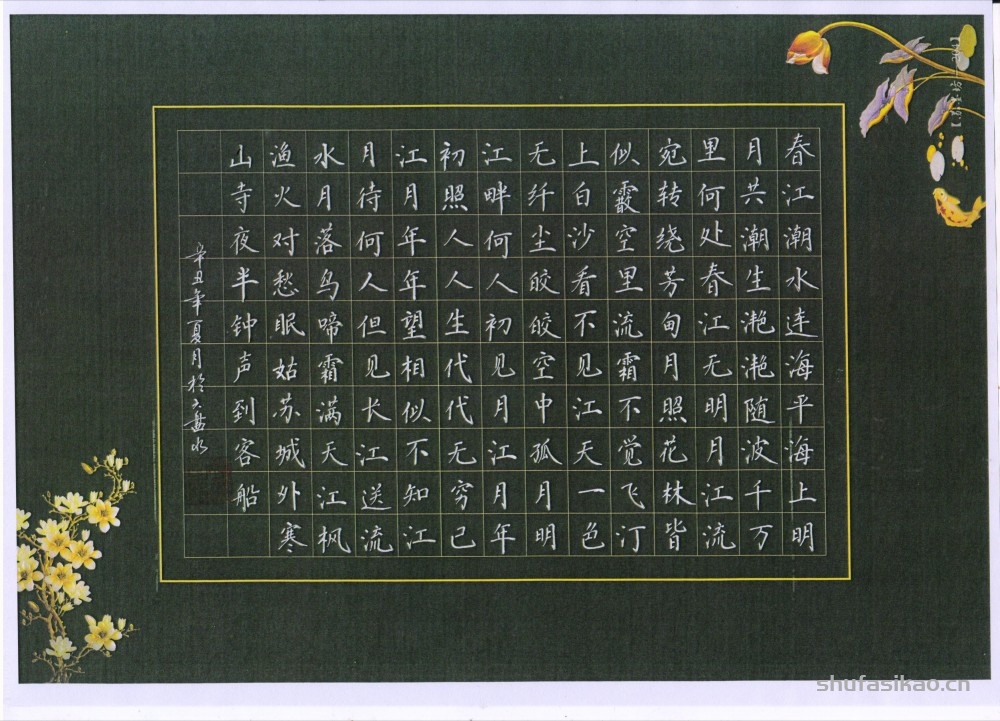 春江潮水连海平海上明
月共潮生滟滟随波千万
里何处春江无明月江流
宛转绕芳甸月照花林皆
似霰空里流霜不觉飞汀
上白沙看不见江天一色
无纤尘皎皎空中孤月明
江畔何人初见月江月年
初照人人生代代无穷已
江月年年望相似不知江
月待何人但见长江送流
水月落乌啼霜满天江枫
渔火对愁眠姑苏城外寒
山寺夜半钟声到客船
辛丑年夏月於六盘水
shufasikao.cn